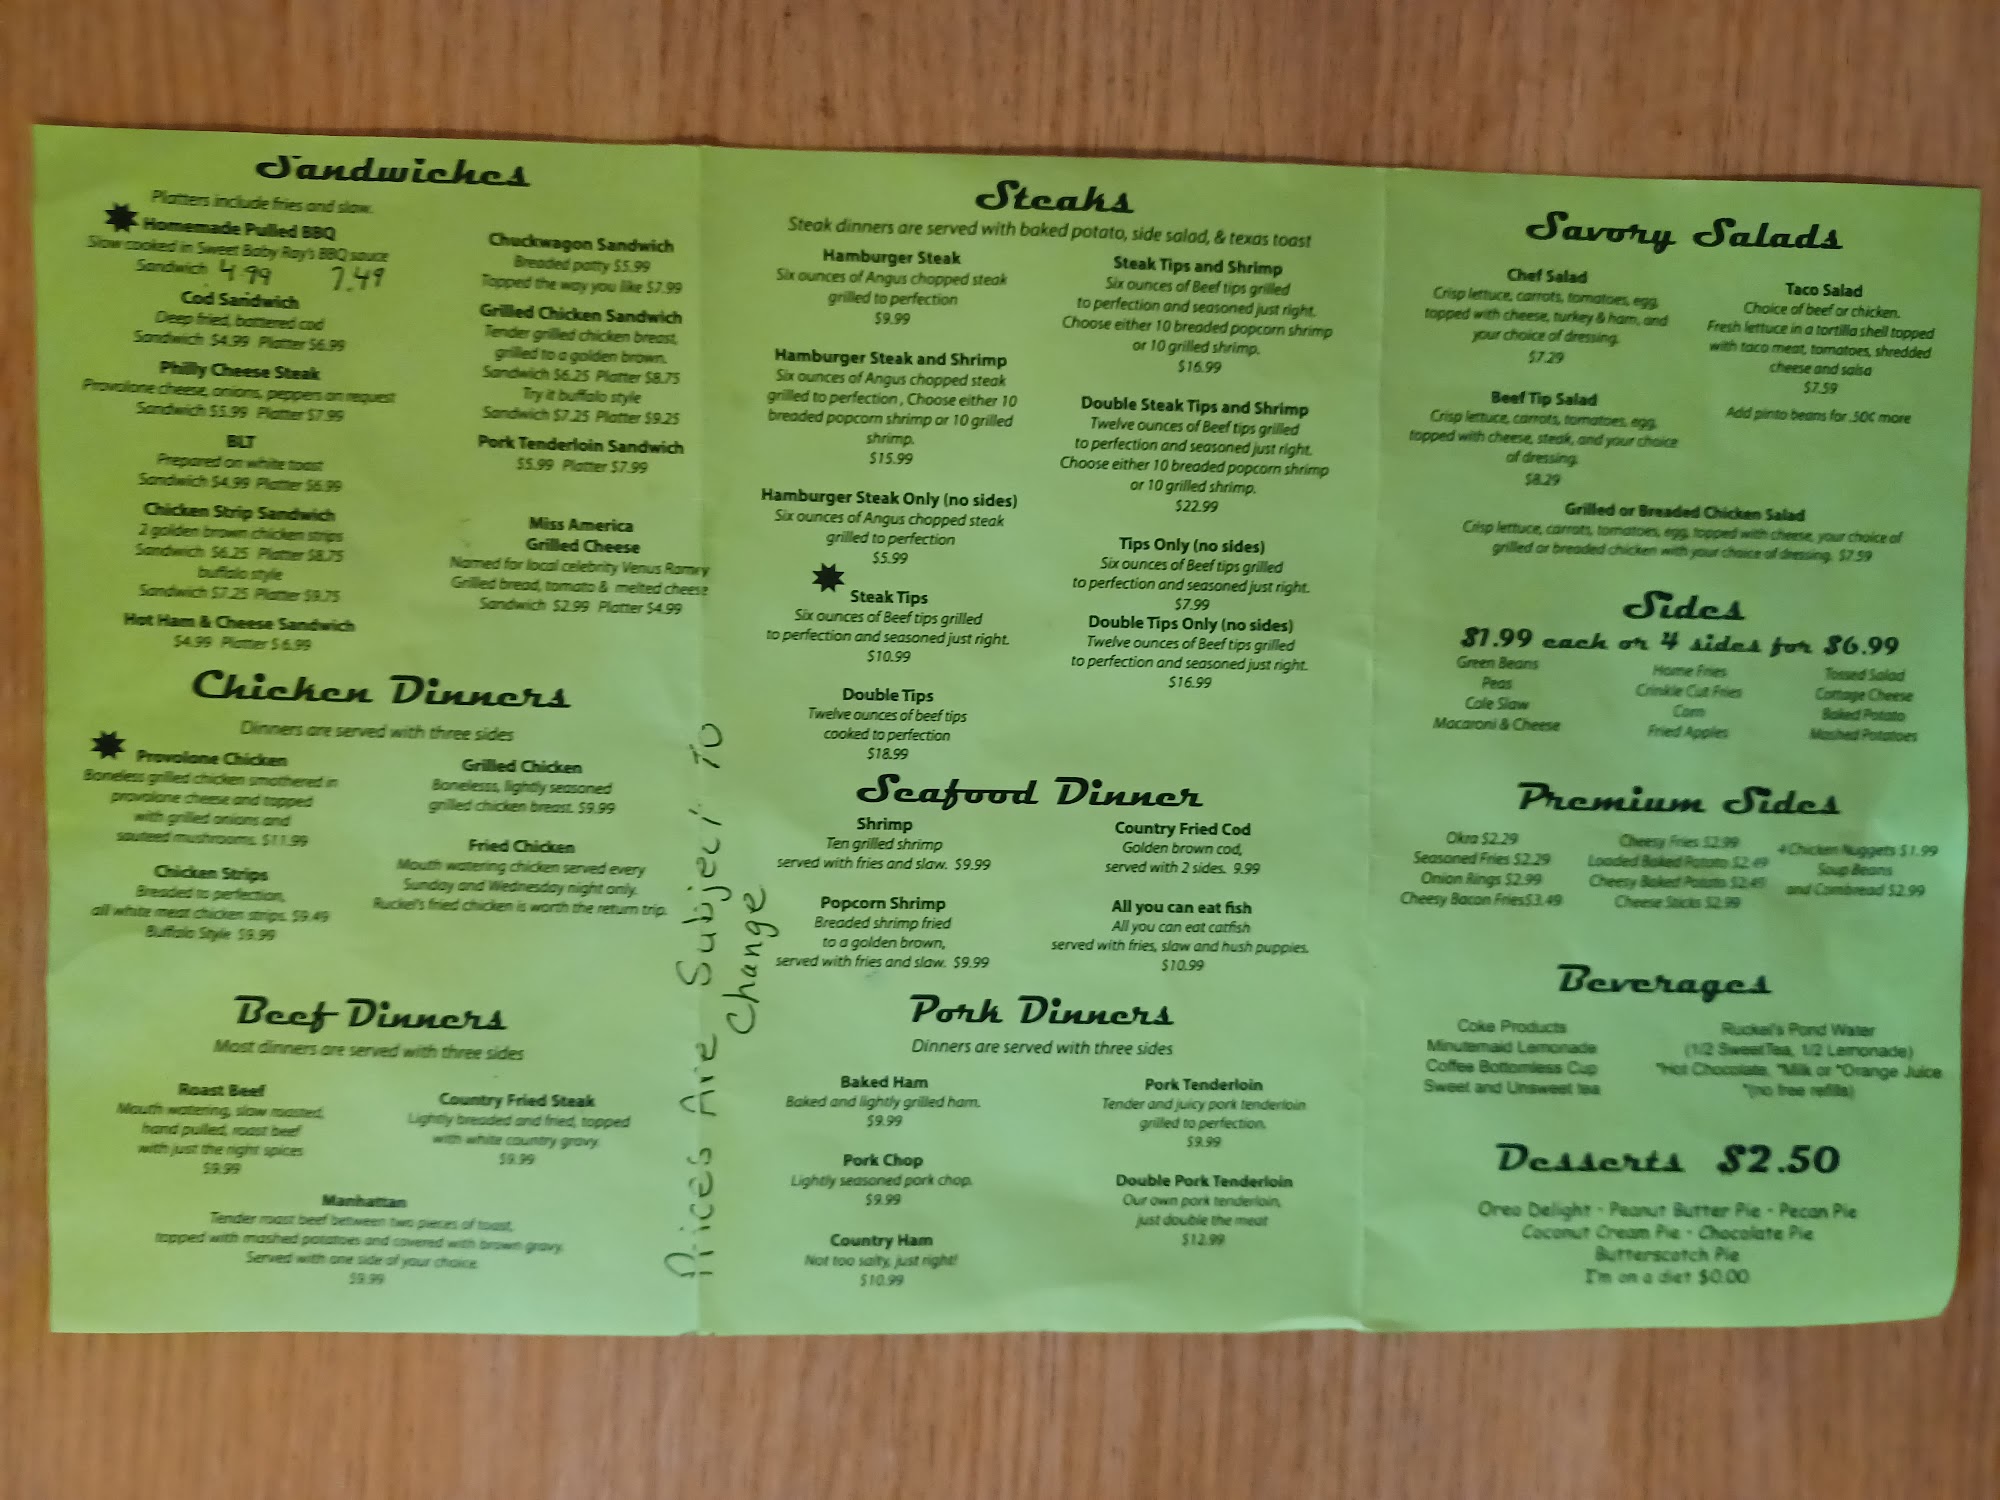 Sandwiches
Platters include fries and slaw.
Homemade Pulled BBQ
Slow cooked in Sweet Baby Ray's BBQ sauce
Sandwich 4.99 7.49
Cod Sandwich
Deep fried, battered cod
Sandwich $4.99 Platter $6.99
Philly Cheese Steak
Provolone cheese, onions, peppers on request
Sandwich $5.99 Platter $7.99
BLT
Prepared on white toast
Sandwich $4.99 Platter $6.99
Chicken Strip Sandwich
2 golden brown chicken strips
Sandwich $6.25 Platter $8.75
buffalo style
Sandwich $7.25 Platter $9.75
Hot Ham & Cheese Sandwich
$4.99 Platter $ 6.99
Chuckwagon Sandwich
Breaded patty $5.99
Topped the way you like $7.99
Grilled Chicken Sandwich
Tender grilled chicken breast,
grilled to a golden brown.
Sandwich $6.25 Platter $8.75
Try it buffalo style
Sandwich $7.25 Platter $9.25
Pork Tenderloin Sandwich
$5.99 Platter $7.99
Miss America
Grilled Cheese
Named for local celebrity Venus Ramey
Grilled bread, tomato & melted cheese
Sandwich $2.99 Platter $4.99
Chicken Dinners
Dinners are served with three sides
Provolone Chicken
Boneless grilled chicken smothered in
provolone cheese and topped
with grilled onions and
sauteed mushrooms. $11.99
Chicken Strips
Breaded to perfection,
all white meat chicken strips. $9.49
Buffalo Style $9.99
Grilled Chicken
Bonelesss, lightly seasoned
grilled chicken breast. $9.99
Fried Chicken
Mouth watering chicken served every
Sunday and Wednesday night only.
Ruckel's fried chicken is worth the return trip.
Beef Dinners
Most dinners are served with three sides
Roast Beef
Mouth watering, slow roasted,
hand pulled, roast beef
with just the right spices
$9.99
Country Fried Steak
Lightly breaded and fried, topped
with white country gravy.
$9.99
Manhattan
Tender roast beef between two pieces of toast,
topped with mashed potatoes and covered with brown gravy.
Served with one side of your choice.
$9.99
Prices Are Subject To
Change
Steaks
Steak dinners are served with baked potato, side salad, & texas toast
Hamburger Steak
Six ounces of Angus chopped steak
grilled to perfection
$9.99
Hamburger Steak and Shrimp
Six ounces of Angus chopped steak
grilled to perfection, Choose either 10
breaded popcorn shrimp or 10 grilled
shrimp.
$15.99
Hamburger Steak Only (no sides)
Six ounces of Angus chopped steak
grilled to perfection
$5.99
Steak Tips
Six ounces of Beef tips grilled
to perfection and seasoned just right.
$10.99
Double Tips
Twelve ounces of beef tips
cooked to perfection
$18.99
Steak Tips and Shrimp
Six ounces of Beef tips grilled
to perfection and seasoned just right.
Choose either 10 breaded popcorn shrimp
or 10 grilled shrimp.
$16.99
Double Steak Tips and Shrimp
Twelve ounces of Beef tips grilled
to perfection and seasoned just right.
Choose either 10 breaded popcorn shrimp
or 10 grilled shrimp.
$22.99
Tips Only (no sides)
Six ounces of Beef tips grilled
to perfection and seasoned just right.
$7.99
Double Tips Only (no sides)
Twelve ounces of Beef tips grilled
to perfection and seasoned just right.
$16.99
Seafood Dinner
Shrimp
Ten grilled shrimp
served with fries and slaw. $9.99
Popcorn Shrimp
Breaded shrimp fried
to a golden brown,
served with fries and slaw. $9.99
Country Fried Cod
Golden brown cod,
served with 2 sides. 9.99
All you can eat fish
All you can eat catfish
served with fries, slaw and hush puppies.
$10.99
Pork Dinners
Dinners are served with three sides
Baked Ham
Baked and lightly grilled ham.
$9.99
Pork Chop
Lightly seasoned pork chop.
$9.99
Country Ham
Not too salty, just right!
$10.99
Pork Tenderloin
Tender and juicy pork tenderloin
grilled to perfection.
$9.99
Double Pork Tenderloin
Our own pork tenderloin,
just double the meat
$12.99
Savory Salads
Chef Salad
Crisp lettuce, carrots, tomatoes, egg,
topped with cheese, turkey & ham, and
your choice of dressing.
$7.29
Beef Tip Salad
Crisp lettuce, carrots, tomatoes, egg,
topped with cheese, steak, and your choice
of dressing.
$8.29
Taco Salad
Choice of beef or chicken.
Fresh lettuce in a tortilla shell topped
with taco meat, tomatoes, shredded
cheese and salsa
$7.59
Add pinto beans for .50¢ more
Grilled or Breaded Chicken Salad
Crisp lettuce, carrots, tomatoes, egg, topped with cheese, your choice of
grilled or breaded chicken with your choice of dressing. $7.59
Sides
$1.99 each or 4 sides for $6.99
Green Beans
Peas
Cole Slaw
Macaroni & Cheese
Home Fries
Crinkle Cut Fries
Corn
Fried Apples
Tossed Salad
Cottage Cheese
Baked Potato
Mashed Potatoes
Premium Sides
Okra $2.29
Seasoned Fries $2.29
Onion Rings $2.99
Cheesy Bacon Fries$3.49
Cheesy Fries $2.99
Loaded Baked Potato $2.49
Cheesy Baked Potato $2.49
Cheese Sticks $2.99
4 Chicken Nuggets $1.99
Soup Beans
and Cornbread $2.99
Beverages
Coke Products
Minutemaid Lemonade
Coffee Bottomless Cup
Sweet and Unsweet tea
Ruckel's Pond Water
(1/2 SweetTea, 1/2 Lemonade)
*Hot Chocolate, *Milk or *Orange Juice
*(no free refills)
Desserts $2.50
Oreo Delight - Peanut Butter Pie - Pecan Pie
Coconut Cream Pie - Chocolate Pie
Butterscotch Pie
I'm on a diet $0.00